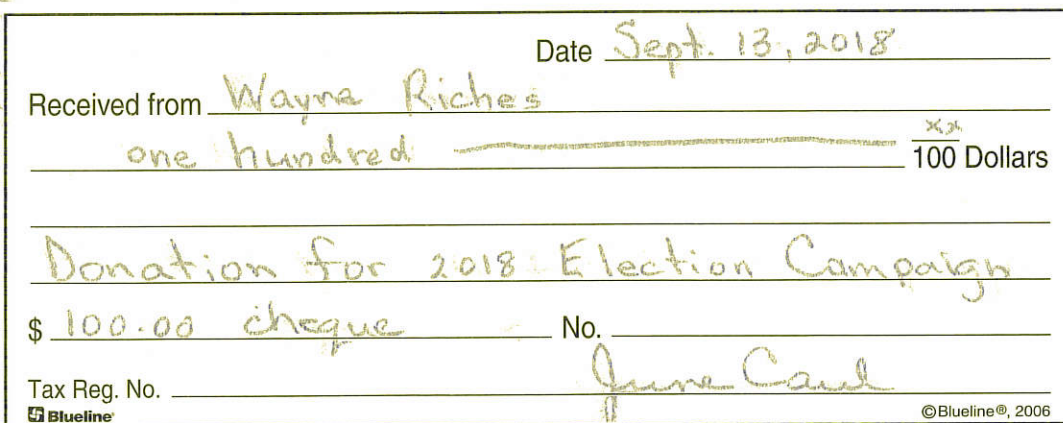 Date Sept. 13, 2018
Received from Wayne Riches
one hundred xx/100 Dollars
Donation for 2018 Election Campaign
$ 100.00 cheque No.
Tax Reg. No. June Caul
Blueline ©Blueline®, 2006